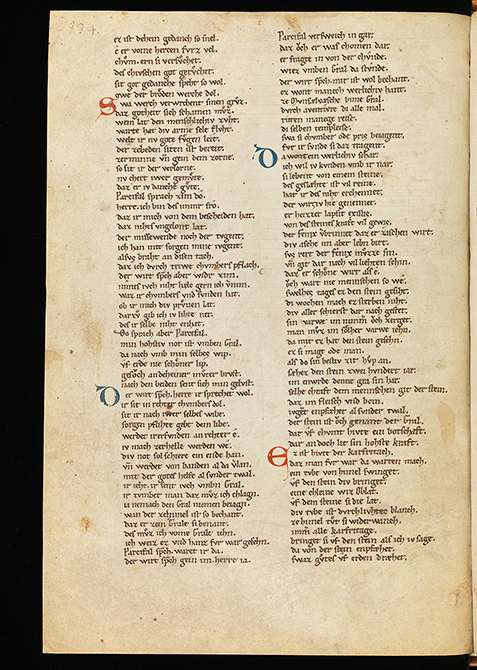 ez ist dehein gedanch so snel.
e er vome hercen fvrz vel.
chvm. ern si versvochet.
des chvschen got gervchet.
sit got gedanche speht so wol.
owe der broden werche dol.
Swa werch verwrchent sinen grvz.
daz gotheit sich schamen mvz.
wem lat den menschlichiv zvht.
war hat div arme sele flvht.
welt ir nv gote fvgen leit.
der zebeden siten ist bereit.
zer minne vn gein dem zorne.
so sit ir der verlorne.
nv chert iwer gemvte.
daz er iv danche gvte.
Parcifal sprach zim do.
herre. ich bin des immer fro.
daz ir mich von dem bescheiden hat.
der nihts vngelonet lat.
der missewende noch der tvgent.
ich han mit sorgen mine ivgent.
alsvs braht an disen tach.
daz ich dvrch triwe chvmbers pflach.
der wirt spch aber wider zim.
nimts ivch niht hæle gern ich vnim.
waz ir chvmbers vnd svnden hat.
ob ir mich div prvuen lat.
dar zv gib ich iv lihte rat.
des ir selbe niht enhat.
Do sprach aber Parcifal.
min hohstiv not ist vmben Gral.
da nach vmb min selbes wip.
vf erde nie schoner lip.
gesoch an deheiner mvter brvst.
nach den beiden sent sich min gelvst.
Der wirt spch. herre ir sprechet wol.
ir sit in rehter chvmbers dol.
sit ir nach iwer selbes wibe.
sorgen pflihte gebt dem libe.
werdet ir erfvnden an rehter e.
iv mach zer helle werden we.
div not sol schiere ein ende han.
vn werdet von banden al da vlan.
mit der gotes helfe al svnder twal.
ir ieht. ir sent ivch vmbn Gral.
ir tvmber man daz mvz ich chlagn.
ia nemach den Gral niemen beiagn.
wan der zehimel ist so bechant.
daz er zem Grale si benant.
des mvz ich vome Grale iehn.
ich weiz ez vnd hanz fvr war gesehn.
Parcifal spch. waret ir da.
der wirt spch gein im. herre ia.
Parcifal versweich in gar.
daz och er was chomen dar.
er fragte in von der chvnde.
wiez vmben Gral da stvnde.
der wirt spch. mir ist wol bechant.
ez wont manech werlichiv hant.
ze Mvnsalvæsche bime Gral.
dvrch aventivre di alle mal.
riten manege reise.
di selben templeise.
swa si chvmber ode pris beiagent.
fvr ir svnde si daz tragent.
Da wont ein werlichiv schar.
ich wil iv kvnden vmb ir nar.
si lebent von einem steine.
des geslæhte ist vil reine.
hat ir des niht erchennet.
der wirt iv hie genennet.
er heizzet lapsit exillis.
von des steines kraft der fenix
der fenix vbrinnet daz er zaschen wirt.
div asche im aber lebn birt.
svs rert der fenix mvzze sin.
vn git dar nach vil liehten schin.
daz er schone wirt als e.
och wart nie mennischen so we.
swelhes tages ez den stein gesiht.
di wochen mach ez sterben niht.
div aller schierst dar nach gestet.
sin varwe im nimm och zerget.
man mvz im solher varwe iehn.
da mit ez hat den stein gesehn.
ez si maget ode man.
als do sin bestiv zit hvp an.
sæhez den stein zwei hvndert iar.
im enwrde denne gra sin har.
selhe chraft dem mennischen git der stein.
daz im fleisch vnd bein.
ivgent enpfæhet al svnder twal.
der stein ist och genant der Gral.
dar vf chvmt hivte ein botschaft.
dar an doch lit sin hohste kraft.
Ez ist hivte der karfritach.
daz man fvr war da warten mach.
ein tvbe von himel swinget.
vf den stein div bringet.
eine chleine wiz oblat.
vf dem steine si die lat.
div tvbe ist dvrchlivhtic blanch.
ze himel tvt si wider wanch.
imm alle karfritage.
bringet si vf den stein als ich iv sage.
da von der stein enpfæhet.
swaz gvtes vf erden dræhet.